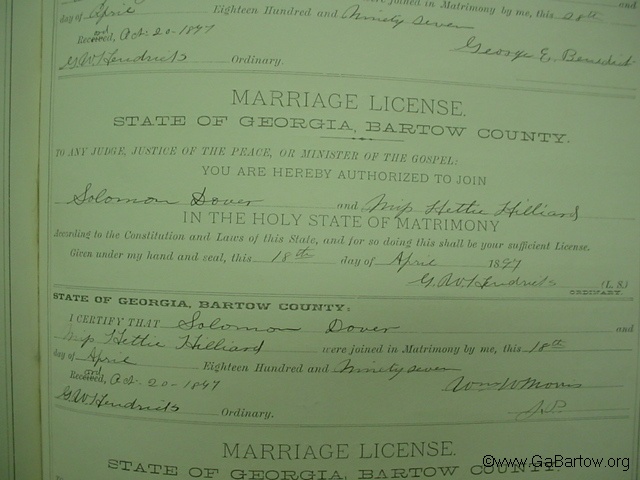 were joined in Matrimony by me, this 28th
day of April Eighteen Hundred and Ninety seven and
Recorded, Oct. 20 - 1897 George E. Benedict
G W Hendricks Ordinary.
MARRIAGE LICENSE.
STATE OF GEORGIA, BARTOW COUNTY.
TO ANY JUDGE, JUSTICE OF THE PEACE, OR MINISTER OF THE GOSPEL:
YOU ARE HEREBY AUTHORIZED TO JOIN
Solomon Dover and Miss Hettie Hilliard
IN THE HOLY STATE OF MATRIMONY
According to the Constitution and Laws of this State, and for so doing this shall be your sufficient License.
Given under my hand and seal, this 18th day of April 1897
G. W. Hendricks (L. S.)
ORDINARY.
STATE OF GEORGIA, BARTOW COUNTY:
I CERTIFY THAT Solomon Dover and
Miss Hettie Hilliard were joined in Matrimony by me, this 18th
day of April Eighteen Hundred and Ninety seven
Recorded, Oct. 20 - 1897 Wm W Morris
G W Hendricks Ordinary. J.P.
MARRIAGE LICENSE.
STATE OF GEORGIA, BARTOW COUNTY.
©www.GaBartow.org